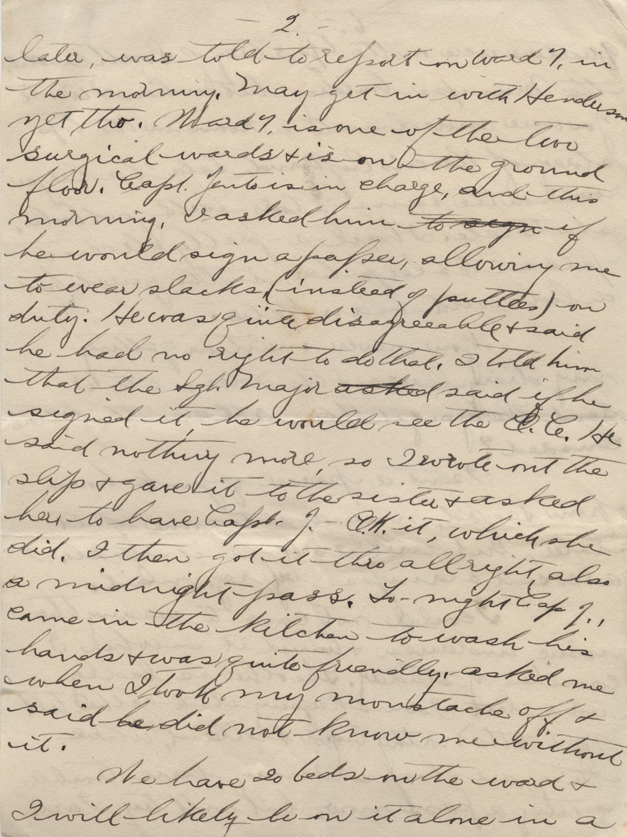 - 2. -
later, was told to report on ward 7, in
the morning. May get in with Henderson
yet tho. Ward 7, is one of the two
surgical wards & is on the ground
floor. Capt. is in charge, and this
morning, I asked him to sign if
he would sign a paper, allowing me
to wear slacks, (instead of puttees) on
duty. He was quite disagreeable & said
he had no right to do that. I told him
that the Sgt. Major asked said if he
signed it, he would see the C.C. He
said nothing more, so I wrote out the
slip & gave it to the sister & asked
her to have Capt. J. - O.K. it, which she
did. I then got it thro all right, also
a midnight pass. To-night Cap J.,
came in the kitchen to wash his
hands & was quite friendly, asked me
when I took my moustache off &
said he did not know me without
it.
We have 20 beds on the ward &
I will likely be on it alone in a